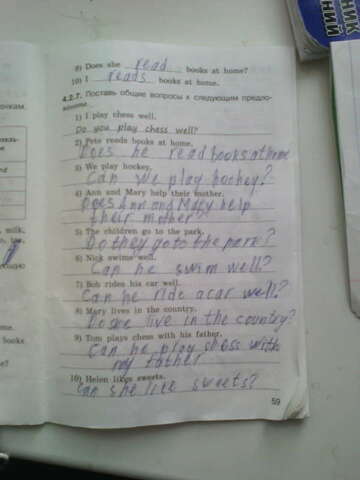 9) Does she read books at home?
10) I reads books at home.
4.2.7. Поставь общие вопросы к следующим предложениям.
1) I play chess well.
Do you play chess well?
2) Pete reads books at home.
Does he read books at home
3) We play hockey.
Can we play hockey?
4) Ann and Mary help their mother.
Does Ann and Mary help
their mother
5) The children go to the park.
Do they go to the park?
6) Nick swims well.
Can he swim well?
7) Bob rides his car well.
Can he ride a car well?
8) Mary lives in the country.
Do she live in the country?
9) Tom plays chess with his father.
Can he play chess with
my father
10) Helen likes sweets.
Can she like sweets?
59
milk,
books